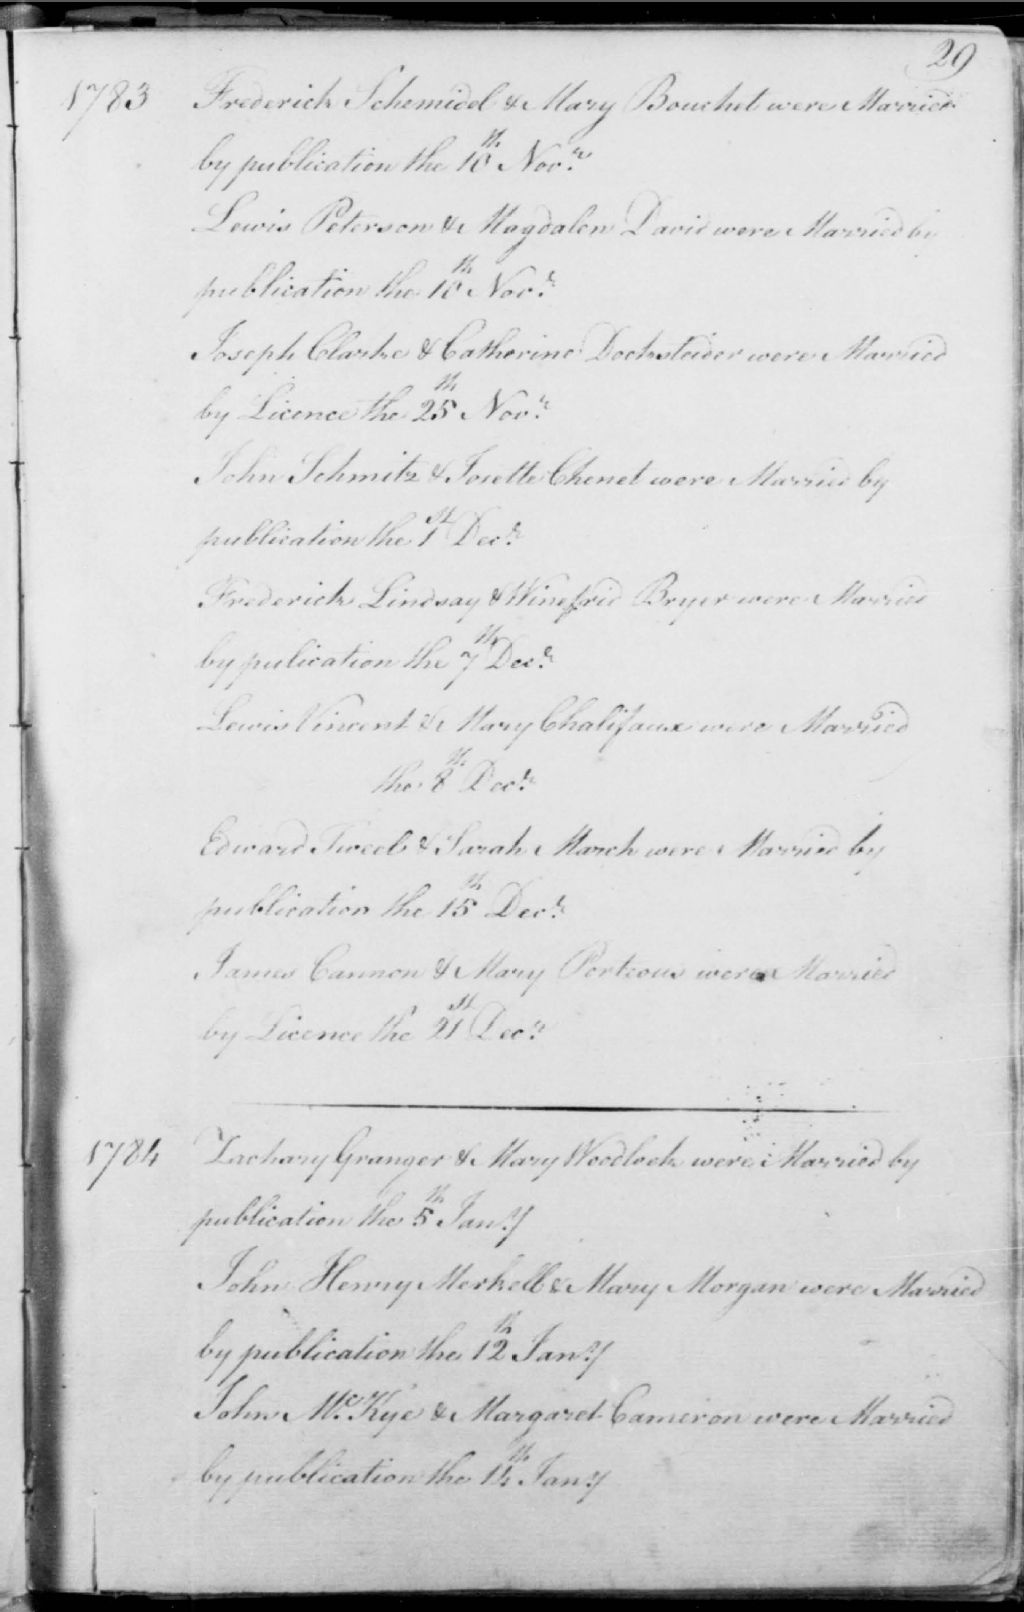 29
1783 Frederick Schemidel & Mary Bouchet were Married
by publication the 10th Novr.
Lewis Peterson & Magdalen David were Married by
publication the 10th Novr.
Joseph Clarke & Catherine Docksteider were Married
by Licence the 25th Novr.
John Schmitz & Josette Chenet were Married by
publication the 1st Decr.
Frederick Lindsay & Winefrid Bryer were Married
by pulication the 7th Decr.
Lewis Vincent & Mary Chalifaux were Married
the 8th Decr.
Edward Tweel & Sarah March were Married by
publication the 15th Decr.
James Cannon & Mary Porteous were Married
by Licence the 21st Decr.
1784 Zachary Granger & Mary Woodlock were Married by
publication the 5th Jany.
John Henry Merkell & Mary Morgan were Married
by publication the 12th Jany.
John Mc.Kye & Margaret Cameron were Married
by publication the 14th Jany.